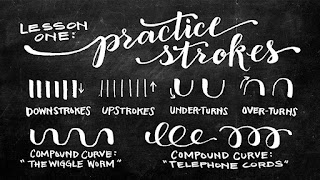 LESSON ONE:
practice strokes
DOWNSTROKES
UPSTROKES
UNDER-TURNS
OVER-TURNS
COMPOUND CURVE:
"THE WIGGLE WORM"
COMPOUND CURVE:
"TELEPHONE CORDS"